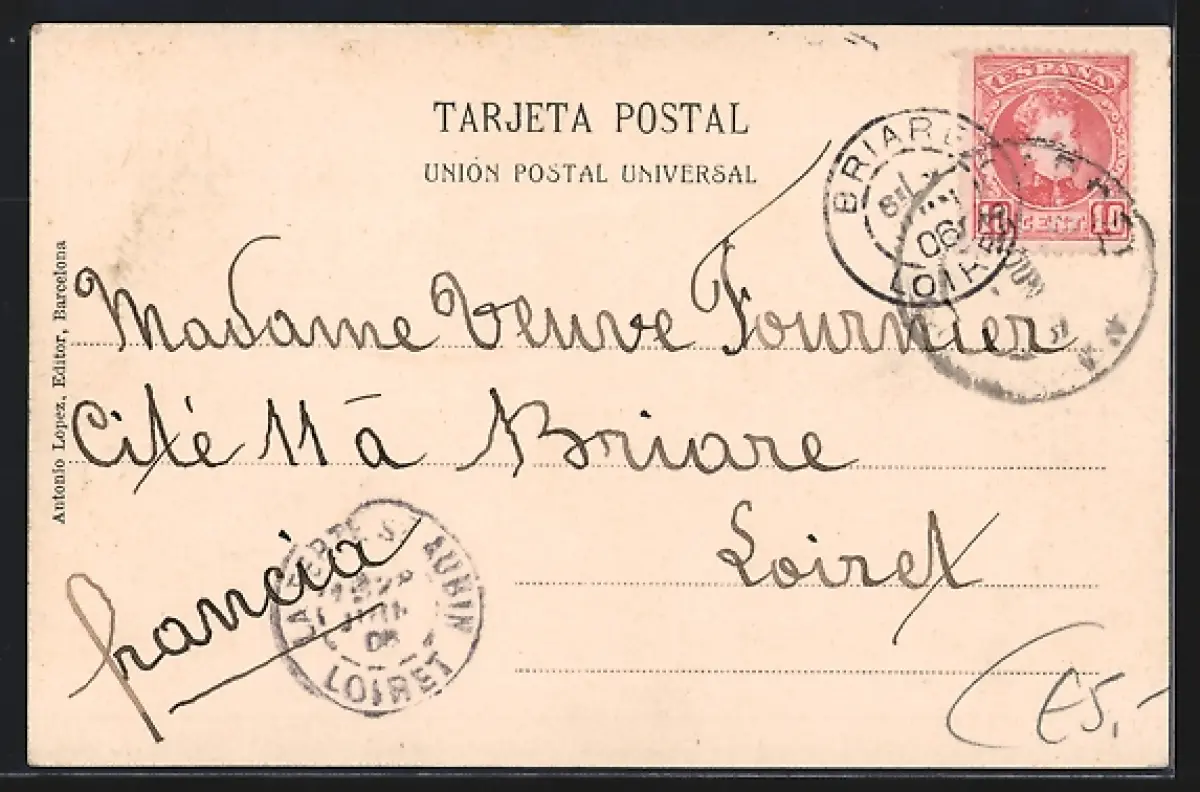 TARJETA POSTAL
UNIÓN POSTAL UNIVERSAL
ESPAÑA
10 CENT 10
BRIARE
06
LOIRET
Antonio López, Editor, Barcelona
Madame Veuve Fournier
Cité 11 à Briare
Loiret
francia
LA FERTE ST AUBIN
JUIN
06
LOIRET
€5,-